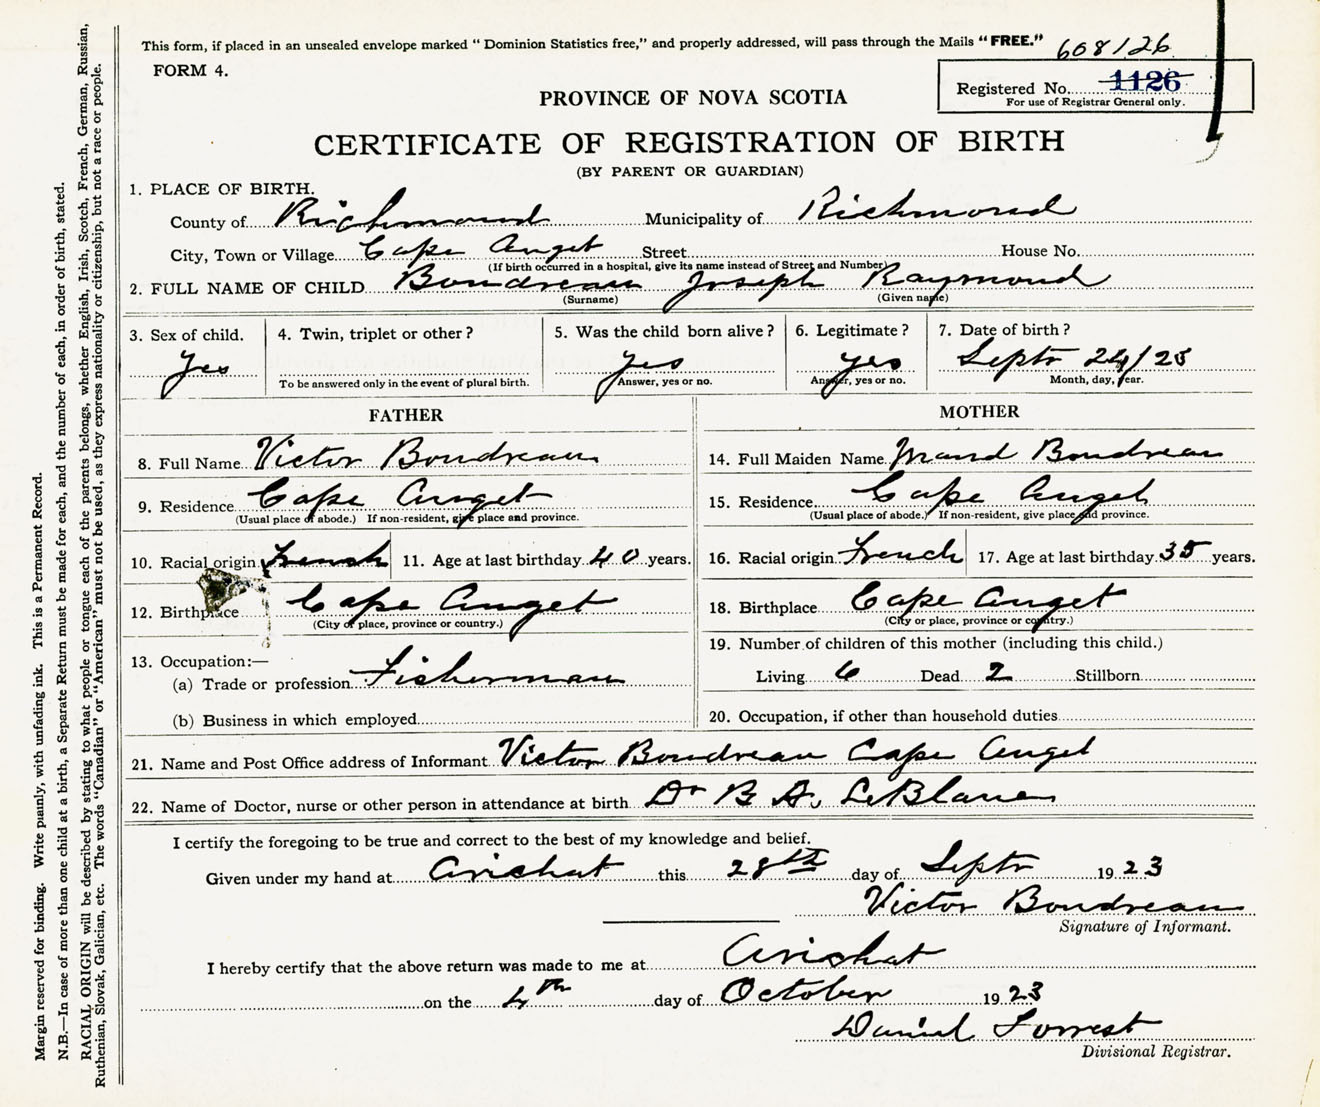 This form, if placed in an unsealed envelope marked "Dominion Statistics free," and properly addressed, will pass through the Mails "FREE."
608126
FORM 4.
Registered No. 1126
For use of Registrar General only.
PROVINCE OF NOVA SCOTIA
CERTIFICATE OF REGISTRATION OF BIRTH
(BY PARENT OR GUARDIAN)
1. PLACE OF BIRTH.
County of Richmond Municipality of Richmond
City, Town or Village Cape Auget Street House No.
(If birth occurred in a hospital, give its name instead of Street and Number)
2. FULL NAME OF CHILD Boudreau Joseph Raymond
(Surname) (Given name)
3. Sex of child. 4. Twin, triplet or other? 5. Was the child born alive? 6. Legitimate? 7. Date of birth?
Yes Yes Yes Septr 24/23
To be answered only in the event of plural birth. Answer, yes or no. Answer, yes or no. Month, day, year.
FATHER MOTHER
8. Full Name Victor Boudreau 14. Full Maiden Name Maud Boudreau
9. Residence Cape Auget 15. Residence Cape Auget
(Usual place of abode.) If non-resident, give place and province. (Usual place of abode.) If non-resident, give place and province.
10. Racial origin French 11. Age at last birthday 40 years. 16. Racial origin French 17. Age at last birthday 35 years.
12. Birthplace Cape Auget 18. Birthplace Cape Auget
(City or place, province or country.) (City or place, province or country.)
13. Occupation:— 19. Number of children of this mother (including this child.)
(a) Trade or profession Fisherman Living 6 Dead 2 Stillborn
(b) Business in which employed 20. Occupation, if other than household duties
21. Name and Post Office address of Informant Victor Boudreau Cape Auget
22. Name of Doctor, nurse or other person in attendance at birth Dr B A. LeBlanc
I certify the foregoing to be true and correct to the best of my knowledge and belief.
Given under my hand at Arichat this 28th day of Septr 1923
Victor Boudreau
Signature of Informant.
I hereby certify that the above return was made to me at Arichat
on the 4th day of October 1923
Daniel Forrest
Divisional Registrar.
Margin reserved for binding. Write plainly, with unfading ink. This is a Permanent Record.
N.B.—In case of more than one child at a birth, a Separate Return must be made for each, and the number of each, in order of birth, stated.
RACIAL ORIGIN will be described by stating to what people or tongue each of the parents belongs, whether English, Irish, Scotch, French, German, Russian,
Ruthenian, Slovak, Galician, etc. The words "Canadian" or "American" must not be used, as they express nationality or citizenship, but not a race or people.